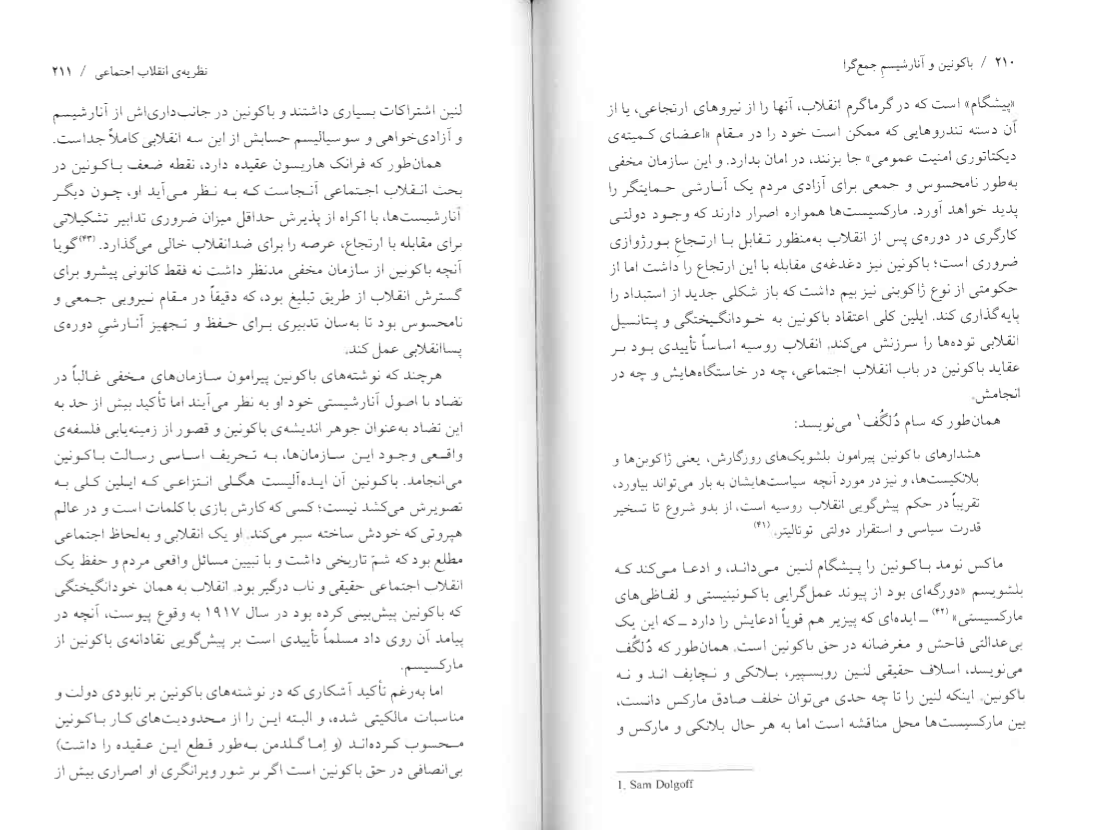 ۲۱۰ / باکونین و آنارشیسم جمع‌گرا
«پیشگام» است که در گرماگرم انقلاب، آنها را از نیروهای ارتجاعی، یا از
آن دسته تندروهایی که ممکن است خود را در مقام «اعضای کمیته‌ی
دیکتاتوری امنیت عمومی» جا بزنند، در امان بدارد. و این سازمان مخفی
به‌طور نامحسوس و جمعی برای آزادی مردم یک آنارشی حمایتگر را
پدید خواهد آورد. مارکسیست‌ها همواره اصرار دارند که وجود دولتی
کارگری در دوره‌ی پس از انقلاب به‌منظور تقابل با ارتجاعِ بورژوازی
ضروری است؛ باکونین نیز دغدغه‌ی مقابله با این ارتجاع را داشت اما از
حکومتی از نوع ژاکوبنی نیز بیم داشت که باز شکلی جدید از استبداد را
پایه‌گذاری کند. ایلین کلی اعتقاد باکونین به خودانگیختگی و پتانسیل
انقلابی توده‌ها را سرزنش می‌کند. انقلاب روسیه اساساً تأییدی بود بر
عقاید باکونین در باب انقلاب اجتماعی، چه در خاستگاه‌هایش و چه در
انجامش.
همان‌طور که سام دُلگُف۱ می‌نویسد:
هشدارهای باکونین پیرامون بلشویک‌های روزگارش، یعنی ژاکوبن‌ها و
بلانکیست‌ها، و نیز در مورد آنچه سیاست‌هایشان به بار می‌تواند بیاورد،
تقریباً در حکم پیش‌گویی انقلاب روسیه است، از بدو شروع تا تسخیر
قدرت سیاسی و استقرار دولتی توتالیتر.(۴۱)
ماکس نومد باکونین را پیشگام لنین می‌داند، و ادعا می‌کند که
بلشویسم «دورگه‌ای بود از پیوند عمل‌گرایی باکونینیستی و لفاظی‌های
مارکسیستی»(۴۲) ــ ایده‌ای که پیزیر هم قویاً ادعایش را دارد ــ که این یک
بی‌عدالتی فاحش و مغرضانه در حق باکونین است. همان‌طور که دُلگُف
می‌نویسد، اسلاف حقیقی لنین روبسپیر، بلانکی و نچایف اند و نه
باکونین. اینکه لنین را تا چه حدی می‌توان خلف صادق مارکس دانست،
بین مارکسیست‌ها محل مناقشه است اما به هر حال بلانکی و مارکس و
1. Sam Dolgoff
نظریه‌ی انقلاب اجتماعی / ۲۱۱
لنین اشتراکات بسیاری داشتند و باکونین در جانب‌داری‌اش از آنارشیسم
و آزادی‌خواهی و سوسیالیسم حسابش از این سه انقلابی کاملاً جداست.
همان‌طور که فرانک هاریسون عقیده دارد، نقطه ضعف باکونین در
بحث انقلاب اجتماعی آنجاست که به نظر می‌آید او، چون دیگر
آنارشیست‌ها، با اکراه از پذیرش حداقل میزان ضروری تدابیر تشکیلاتی
برای مقابله با ارتجاع، عرصه را برای ضدانقلاب خالی می‌گذارد.(۴۳) گویا
آنچه باکونین از سازمان مخفی مدنظر داشت نه فقط کانونی پیشرو برای
گسترش انقلاب از طریق تبلیغ بود، که دقیقاً در مقام نیرویی جمعی و
نامحسوس بود تا به‌سان تدبیری برای حفظ و تجهیز آنارشیِ دوره‌ی
پساانقلابی عمل کند.
هرچند که نوشته‌های باکونین پیرامون سازمان‌های مخفی غالباً در
تضاد با اصول آنارشیستی خود او به نظر می‌آیند اما تأکید بیش از حد به
این تضاد به‌عنوان جوهر اندیشه‌ی باکونین و قصور از زمینه‌یابی فلسفه‌ی
واقعی وجود این سازمان‌ها، به تحریف اساسی رسالت باکونین
می‌انجامد. باکونین آن ایده‌آلیست هگلی انتزاعی که ایلین کلی به
تصویرش می‌کشد نیست؛ کسی که کارش بازی با کلمات است و در عالم
هپروتی که خودش ساخته سیر می‌کند. او یک انقلابی و به‌لحاظ اجتماعی
مطلع بود که شمّ تاریخی داشت و با تبیین مسائل واقعی مردم و حفظ یک
انقلاب اجتماعی حقیقی و ناب درگیر بود. انقلاب به همان خودانگیختگی
که باکونین پیش‌بینی کرده بود در سال ۱۹۱۷ به وقوع پیوست، آنچه در
پیامد آن روی داد مسلماً تأییدی است بر پیش‌گویی نقادانه‌ی باکونین از
مارکسیسم.
اما به‌رغم تأکید آشکاری که در نوشته‌های باکونین بر نابودی دولت و
مناسبات مالکیتی شده، و البته این را از محدودیت‌های کار باکونین
محسوب کرده‌اند (و اِما گلدمن به‌طور قطع این عقیده را داشت)
بی‌انصافی در حق باکونین است اگر بر شور ویرانگری او اصراری بیش از